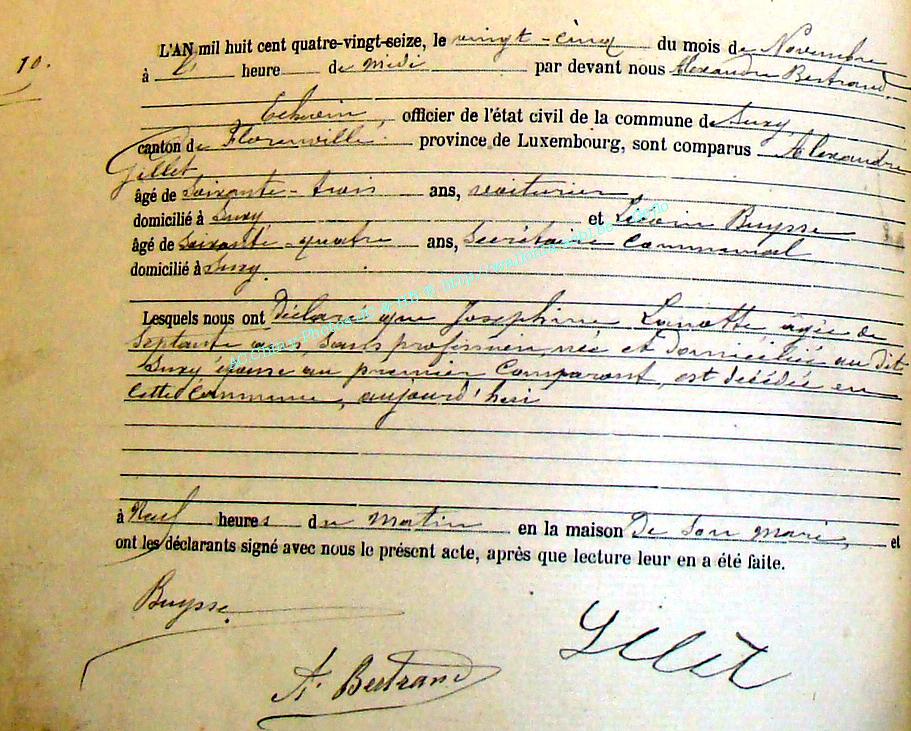 10.
L'AN mil huit cent quatre-vingt-seize, le vingt-cinq du mois de Novembre
à l' heure de midi par devant nous Alexandre Bertrand,
Echevin, officier de l'état civil de la commune de Suxy,
canton de Florenville province de Luxembourg, sont comparus Alexandre
Gillet
âgé de Soixante-trois ans, voiturier,
domicilié à Suxy et Liévin Buysse
âgé de soixante-quatre ans, Secrétaire Communal
domicilié à Suxy.
Lesquels nous ont Déclaré que Joséphine Lanotte âgée de
Septante ans, sans profession, née et domiciliée au dit
Suxy épouse au premier Comparant, est décédée en
cette Commune, aujourd'hui
à Neuf heures du matin en la maison De son mari, et
ont les déclarants signé avec nous le présent acte, après que lecture leur en a été faite.
Buysse.
Gillet
A. Bertrand